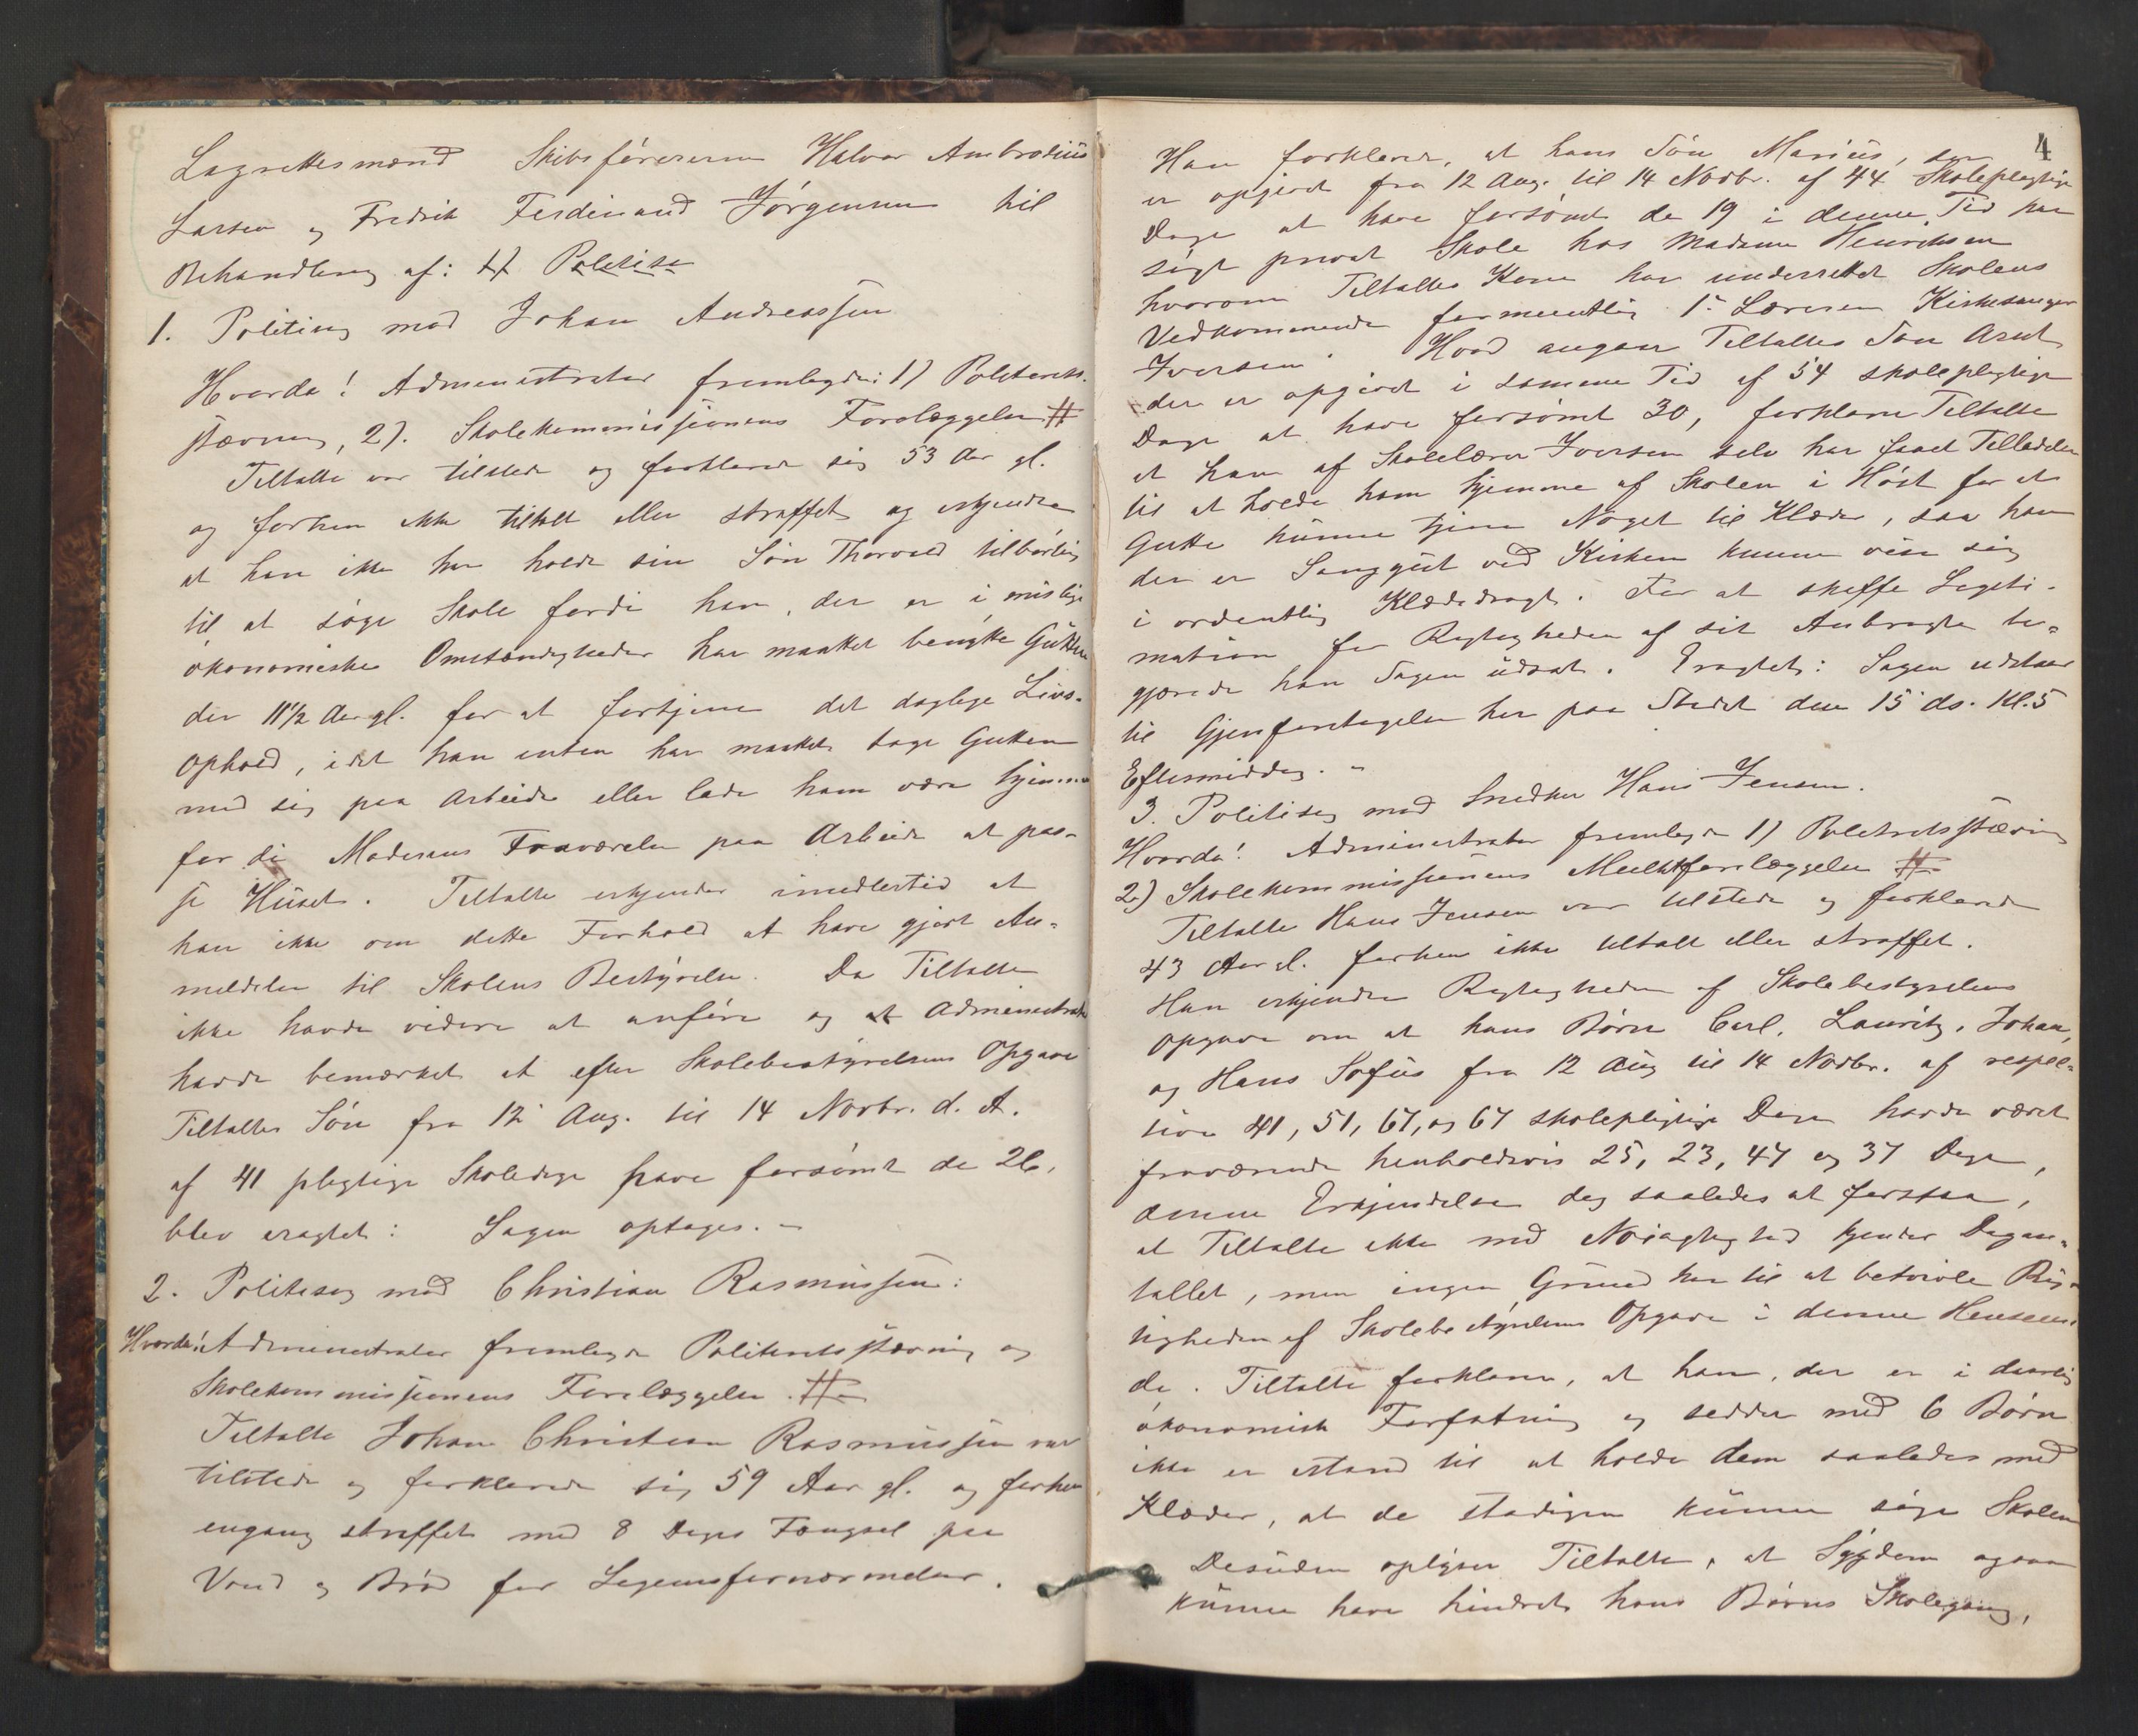 Lagrettesmænd Skibsførerene Halvor Ambrosius
Larsen og Fredrik Ferdinand Jørgensen til
Behandling af:
1. Politisag mod Johan Andreassen
Hvorda! Administrator fremlagde: 1) Politirets-
stævning, 2). Skolekommissionens Forelæggelse #
Tiltalte var tilstede og forklarede sig 53 Aar gl.
og forhen ikke tiltalt eller straffet og erkjendte
at han ikke har holdt sin Søn Thorvald tilbørlig
til at søge Skole fordi han, der er i mislige
økonomiske Omstændigheder har maattet benytte Gutten
der 11½ Aar gl. for at fortjene det daglige Livs-
ophold, idet han enten har maattet tage Gutten
med sig paa Arbeide eller lade ham være hjemme
for di Moderens Fraværelse paa Arbeide at pas-
se Huset. Tiltalte erkjender imidlertid at
han ikke om dette Forhold at have gjort An-
meldelse til Skolens Bestyrelse. Da Tiltalte
ikke havde videre at anføre og at Administrator
havde bemærket at efter Skolebestyrelsens Opgave
Tiltaltes Søn fra 12 Aug. til 14 Novbr. d. A.
af 41 pligtige Skoledage have forsømt de 26,
blev eragtet: Sagen optages. -
2. Politisag mod Christian Rasmussen:
Hvorda! Administrator fremlagde Politiretsstævning og
Skolekommissionens Forelæggelse. #
Tiltalte Johan Christian Rasmussen var
tilstede og forklarede sig 59 Aar gl. og forhen
engang straffet med 8 Dages Fængsel paa
Vand og Brød for Legemsfornærmelse.
4
Han forklarer, at hans Søn Marius, som
er opgivet fra 12 Aug. til 14 Novbr. af 44 Skolepligtige
Dage at have forsømt de 19 i denne Tid har
søgt privat Skole hos Madame Henriksen
hvorom Tiltaltes Kone har underrettet Skolens
Vedkommende formentlig 1ste Læreren Kirkesanger
Iversen. Hvad angaar Tiltaltes Søn Arnt
der er opgivet i samme Tid af 54 skolepligtige
Dage at have forsømt 30, forklarer Tiltalte
at han af Skolelærer Iversen selv har faaet Tilladelse
til at holde ham hjemme af Skolen i Høst for at
Gutten kunne tjene Noget til Klæder, saa han
der er Sanggut ved Kirken kunne vise sig
i ordentlig Klædedragt. For at skaffe Legiti-
mation for Rigtigheden af sit Anbragte be-
gjærede han Sagen udsat. Eragtet: Sagen udstaar
til Gjenforetagelse her paa Stedet den 15 ds. Kl. 5
Eftermiddag. -
3. Politisag mod Snedker Hans Jensen.
Hvorda! Administrator fremlagde 1) Politiretsstævning
2) Skolekommissionens Mulktforelæggelse #
Tiltalte Hans Jensen var tilstede og forklarede
43 Aar gl. forhen ikke tiltalt eller straffet.
Han erkjendte Rigtigheden af Skolebestyrelsens
Opgave om at hans Børn Carl, Lauritz, Johan,
og Hans Sofus fra 12 Aug til 14 Novbr. af respek-
tive 41, 51, 67, og 67 skolepligtige Dage havde været
fraværende henholdsvis 25, 23, 47 og 37 Dage,
denne Erkjendelse dog saaledes at forstaa,
at Tiltalte ikke med Nøiagtighed kjender Dagan-
tallet, men ingen Grund har til at betvivle Rig-
tigheden af Skolebestyrelsens Opgave i denne Henseen-
de. Tiltalte forklarer, at han, der er i daarlig
økonomisk Forfatning og sidder med 6 Børn
ikke er istand til at holde dem saaledes med
Klæder, at de stadigen kunne søge Skolen
Desuden oplyser Tiltalte, at Sygdom ogsaa
kunne have hindret hans Børns Skolegang,